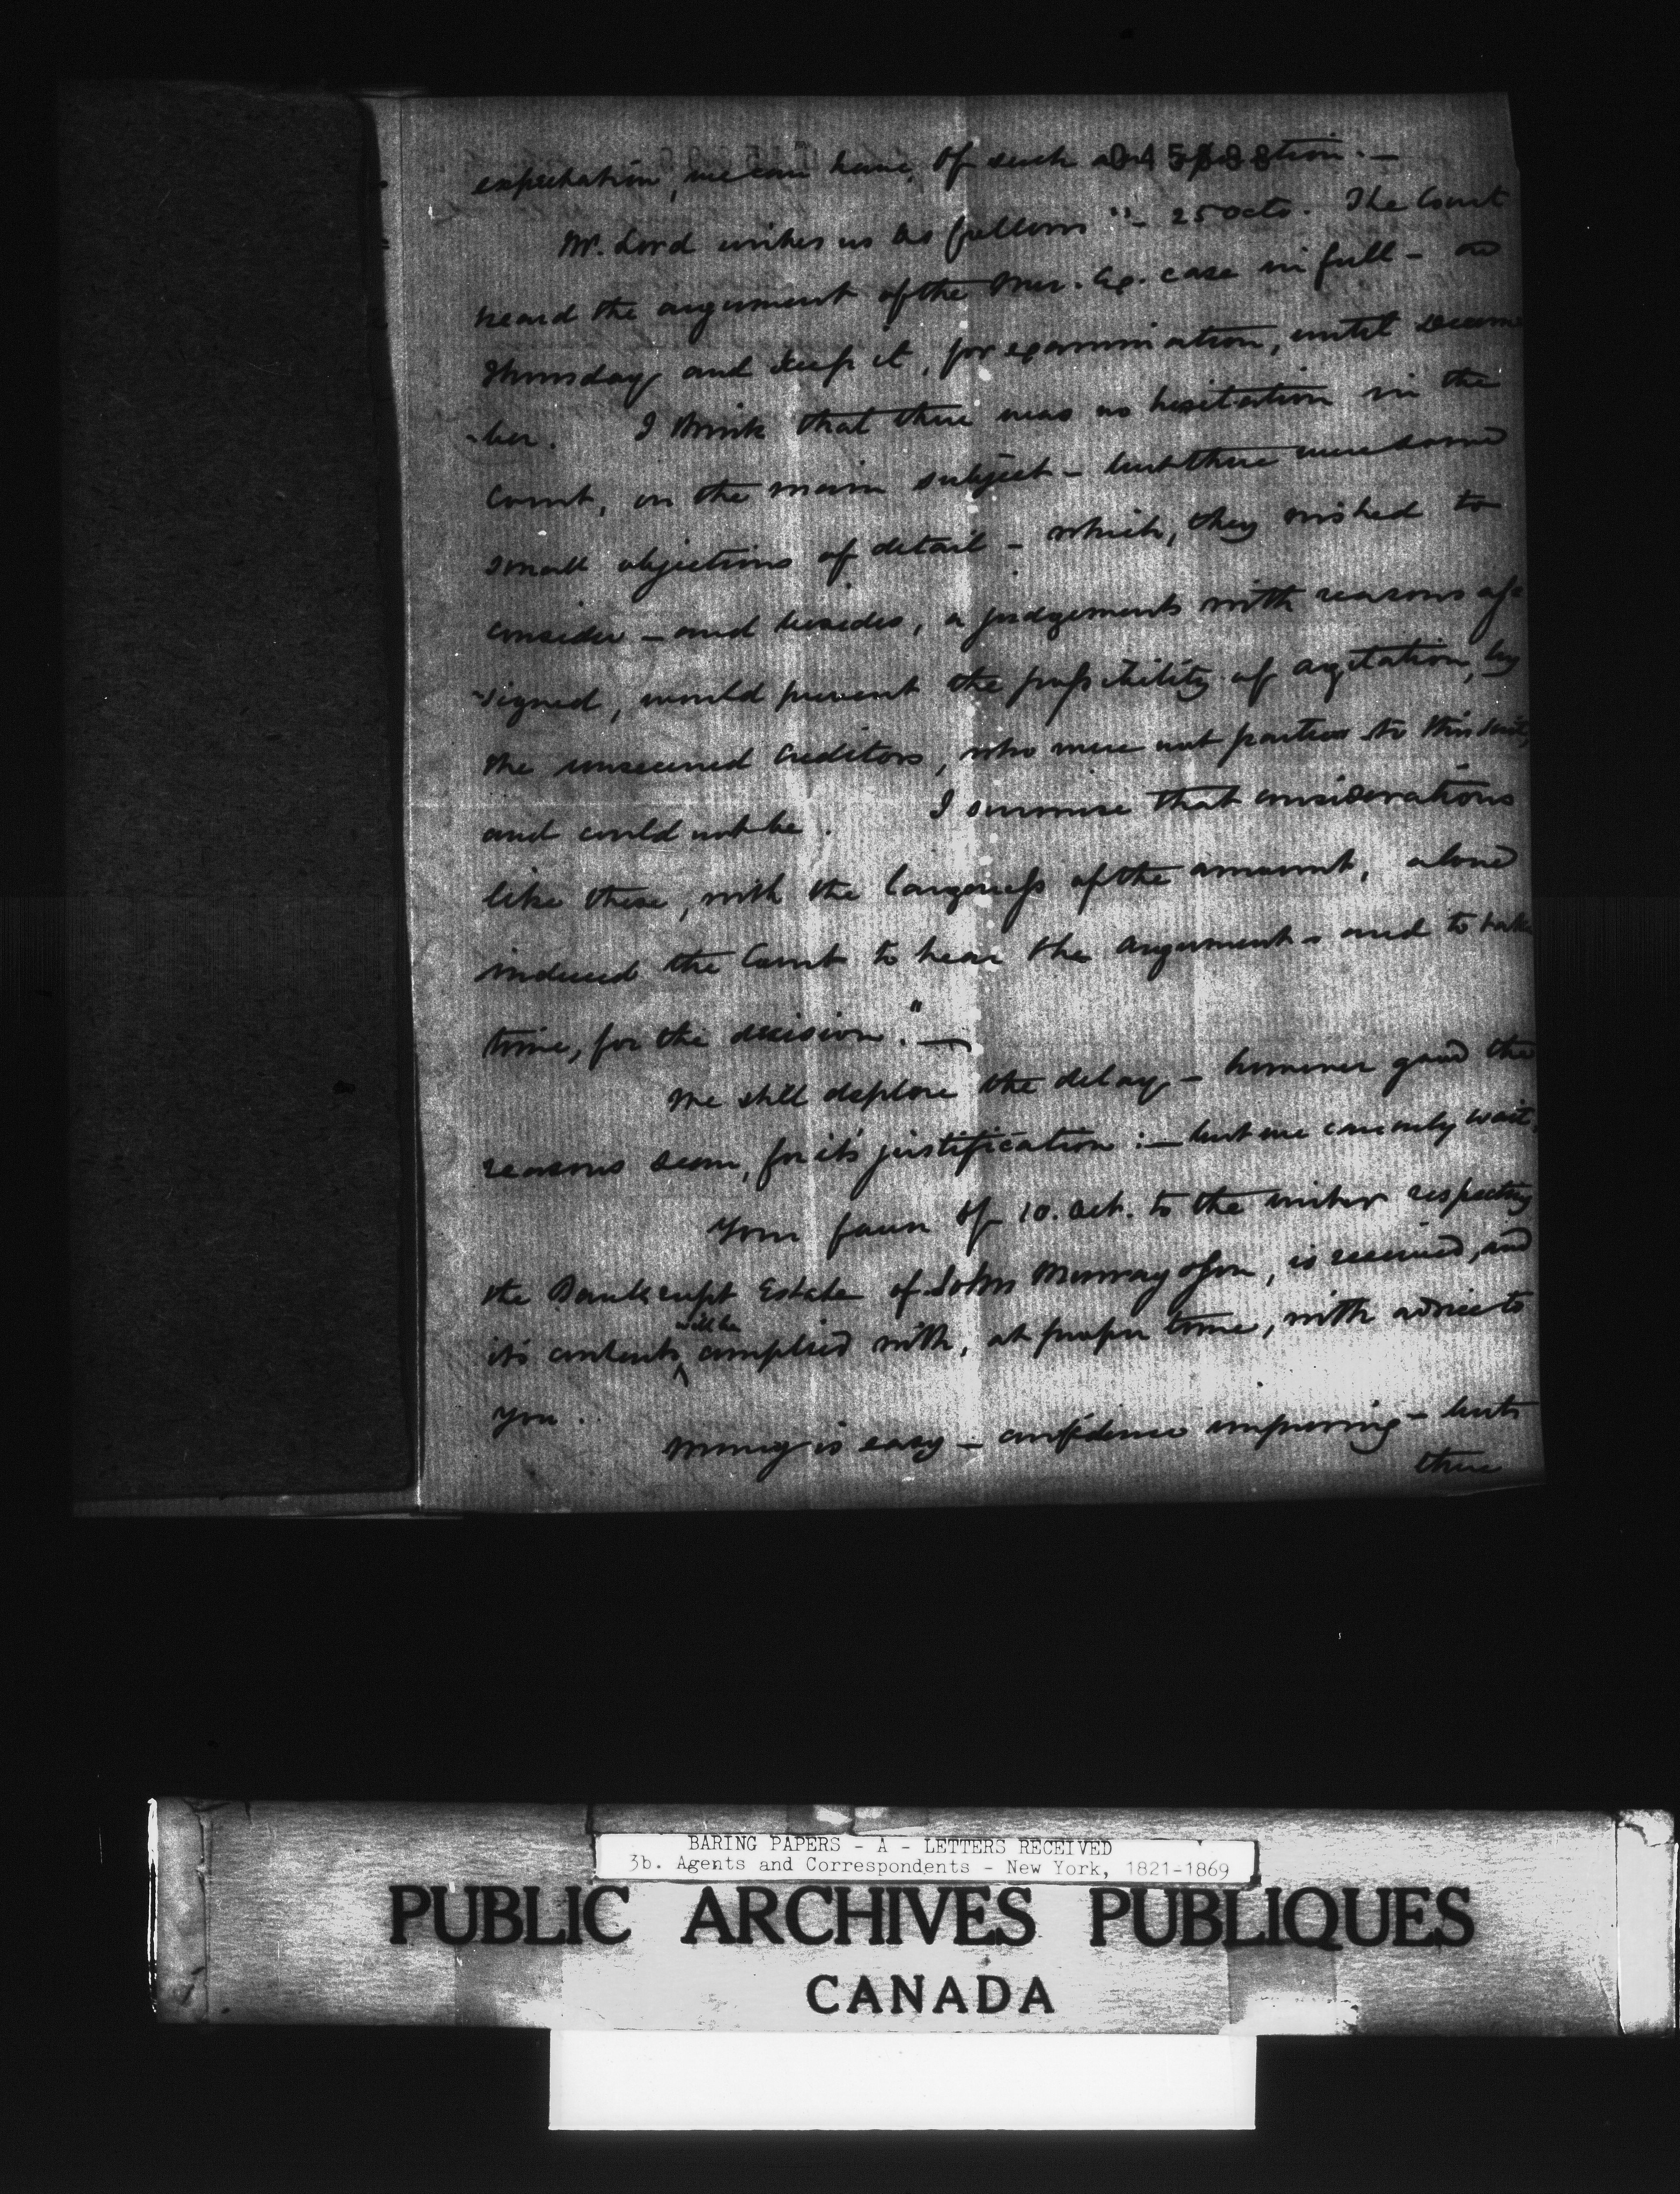 expectation, we can have, of such an
045888
Mr. Lord writes us as follows "- 25 Octo. The Court
heard the argument of the Mor. Ca. case in full - on
Thursday and keep it, for examination, until Decem
-ber. I think that there was no hesitation in the
Court, on the main subject - but there were some
small objections of detail - which, they wished to
consider - and besides, a judgement with reasons as-
-signed, would prevent the possibility of agitation, by
the unsecured Creditors, who were not parties to this suit,
and could not be. I surmise that considerations
like these, with the largeness of the amount, alone
induced the Court to hear the argument - and to take
time, for the decision." -
We still deplore the delay - however good the
reasons seem, for it's justification :- but we can only wait.
Your favor of 10. Oct. to the writer respecting
the Bankrupt Estate of John Murray & Son, is received, and
it's contents will be complied with, at proper time, with advice to
you.
Money is easy - confidence improving - but
there
BARING PAPERS - A - LETTERS RECEIVED
3b. Agents and Correspondents - New York, 1821-1869
PUBLIC ARCHIVES PUBLIQUES
CANADA